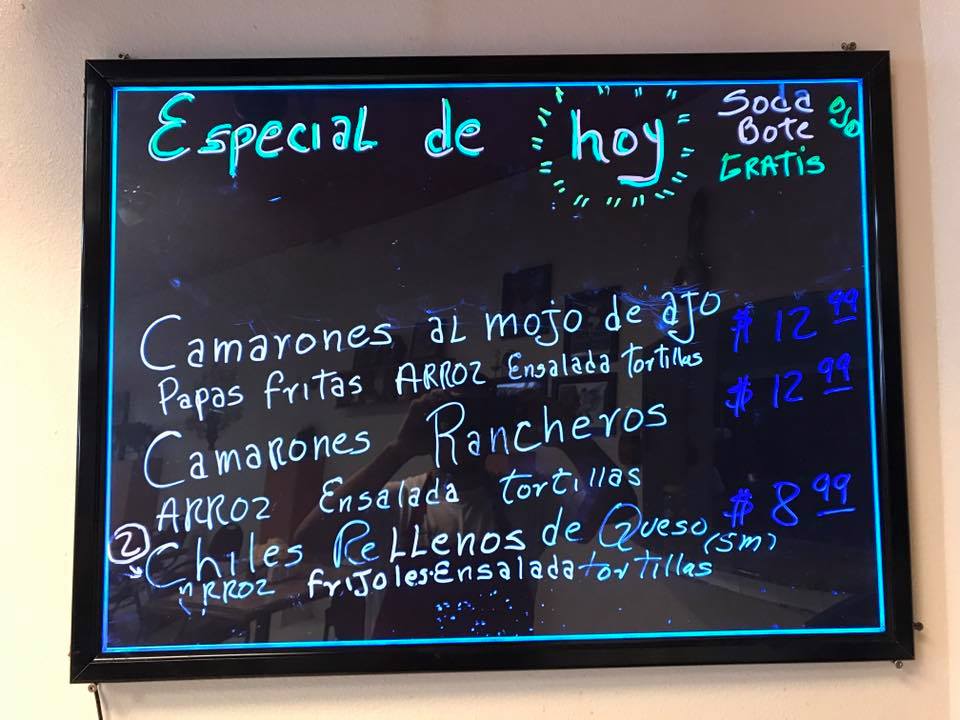 Especial de hoy
Soda
Bote
GRATIS
Camarones al mojo de ajo $12 99
Papas fritas ARROZ Ensalada tortillas
Camarones Rancheros $12 99
ARROZ Ensalada tortillas
2 Chiles ReLLenos de Queso (sm) $8 99
ARROZ frijoles. Ensalada tortillas